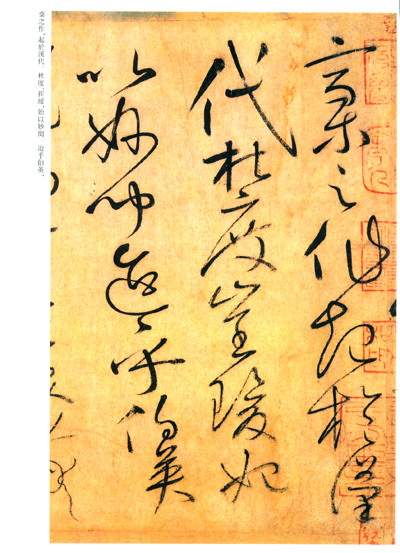 槀之作起於漢
代杜度崔瑗始
以妙聞迨乎伯英
槀之作，起於漢代，杜度、崔瑗，始以妙聞。迨乎伯英，